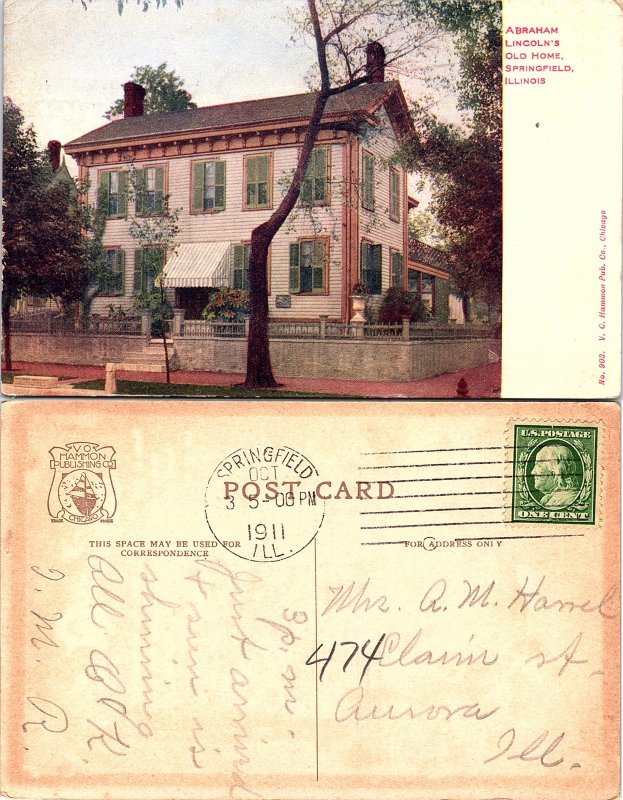 ABRAHAM
LINCOLN'S
OLD HOME,
SPRINGFIELD,
ILLINOIS
No. 903. V. O. Hammon Pub. Co., Chicago
V.O.
HAMMON
PUBLISHING CO
CHICAGO
TRADE MARK
SPRINGFIELD
OCT
3 5-00 PM
1911
ILL.
U.S. POSTAGE
ONE CENT
POST CARD
THIS SPACE MAY BE USED FOR
CORRESPONDENCE
FOR ADDRESS ONLY
3 p.m.
Just arrived
& sun is
shining
All O.K.
I. M. R.
Mrs. A. M. Harrel
474 Claim st.
Aurora
Ill.